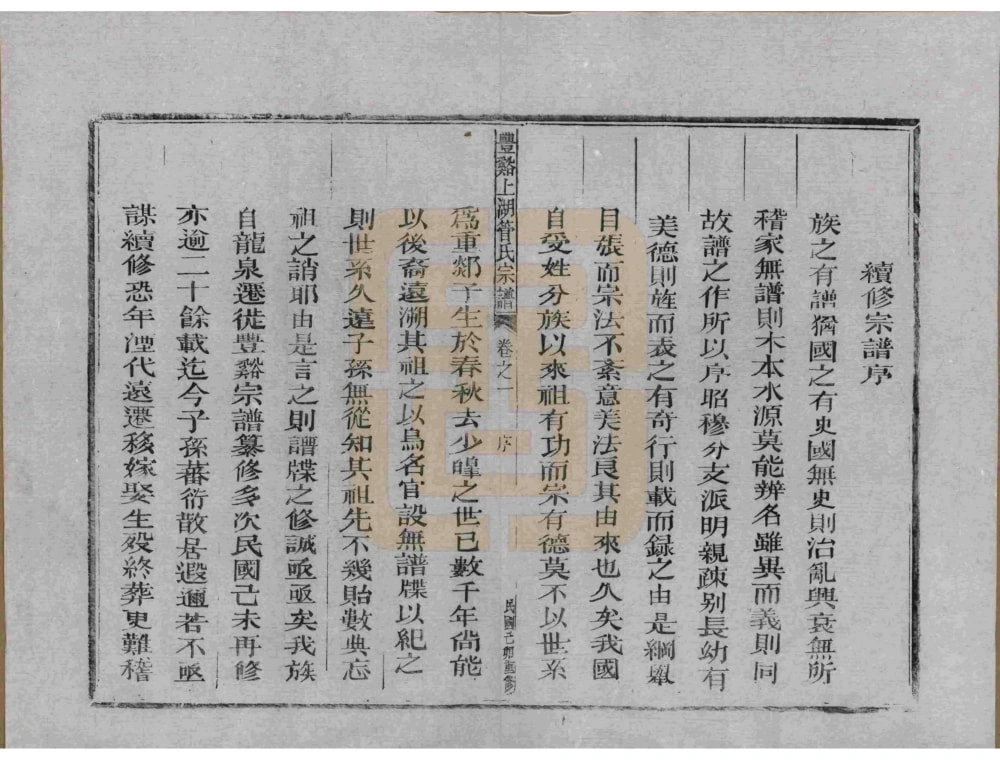 續修宗譜序
族之有譜猶國之有史國無史則治亂興衰無所
稽家無譜則木本水源莫能辨名雖異而義則同
故譜之作所以序昭穆分支派明親疎别長幼有
美德則旌而表之有奇行則載而録之由是綱舉
目張而宗法不紊意美法良其由來也久矣我國
自受姓分族以來祖有功而宗有德莫不以世系
豐谿上湖管氏宗譜 卷之一 序 民國己卯重修
爲重郯子生於春秋去少皡之世已數千年尙能
以後裔遠溯其祖之以鳥名官設無譜牒以紀之
則世系久遠子孫無從知其祖先不幾貽數典忘
祖之誚耶由是言之則譜牒之修誠亟亟矣我族
自龍泉遷徙豐谿宗譜纂修多次民國己未再修
亦逾二十餘載迄今子孫蕃衍散居遐邇若不亟
謀續修恐年湮代遠遷移嫁娶生殁終葬更難稽